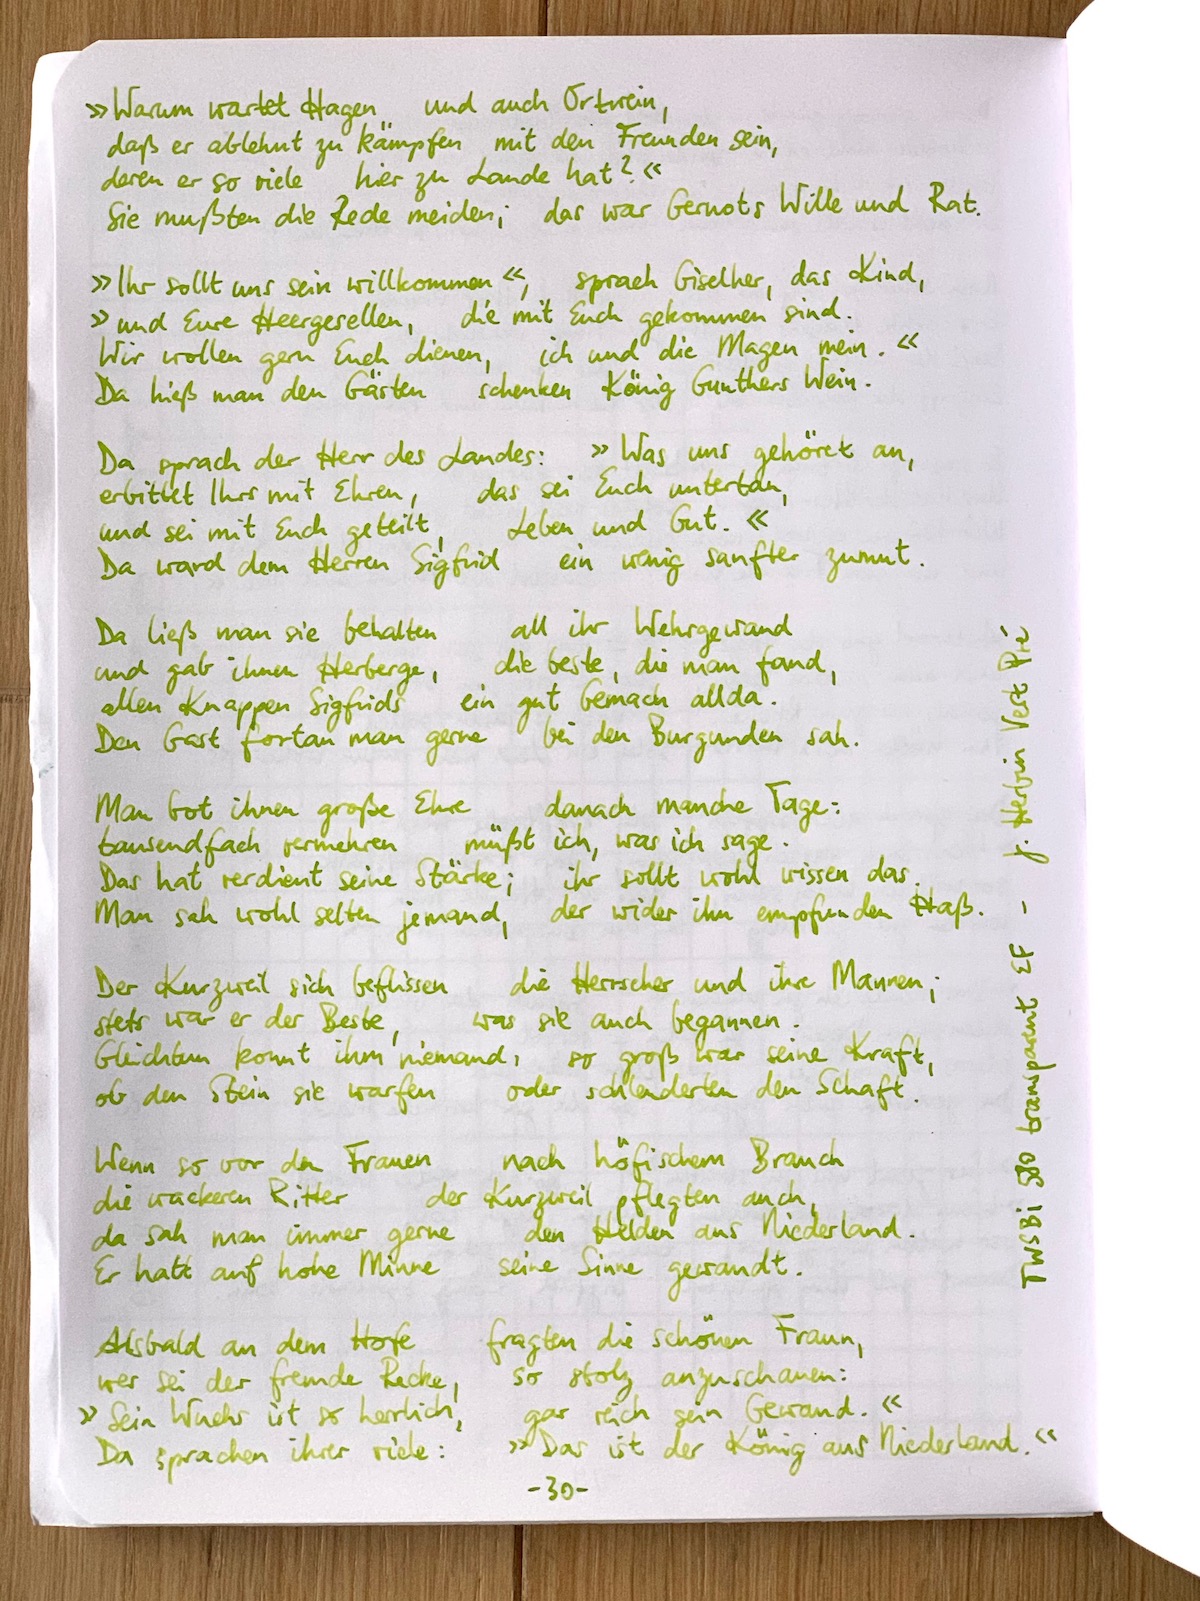 »Warum wartet Hagen und auch Ortwein,
daß er ablehnt zu kämpfen mit den Freunden sein,
deren er so viele hier zu Lande hat?«
Sie mußten die Rede meiden; das war Gernots Wille und Rat.
»Ihr sollt uns sein willkommen«, sprach Giselher, das Kind,
»und Eure Heergesellen, die mit Euch gekommen sind.
Wir wollen gern Euch dienen, ich und die Magen mein.«
Da hieß man den Gästen schenken König Gunthers Wein.
Da sprach der Herr des Landes: »Was uns gehöret an,
erbittet Ihrs mit Ehren, das sei Euch untertan,
und sei mit Euch geteilt, Leben und Gut.«
Da ward dem Herren Sigfrid ein wenig sanfter zumut.
Da ließ man sie behalten all ihr Wehrgewand
und gab ihnen Herberge, die beste, die man fand,
allen Knappen Sigfrids ein gut Gemach allda.
Den Gast fortan man gerne bei den Burgunden sah.
Man bot ihnen große Ehre danach manche Tage:
tausendfach vermehren müßt ich, was ich sage.
Das hat verdient seine Stärke; ihr sollt wohl wissen das.
Man sah wohl selten jemand, der wider ihn empfunden Haß.
Der Kurzweil sich beflissen die Herrscher und ihre Mannen;
stets war er der Beste, was sie auch begannen.
Gleichtun konnt ihm niemand, so groß war seine Kraft,
ob den Stein sie warfen oder schleuderten den Schaft.
Wenn so vor den Frauen nach höfischem Brauch
die wackeren Ritter der Kurzweil pflegten auch,
da sah man immer gerne den Helden aus Niederland.
Er hatt auf hohe Minne seine Sinne gewandt.
Alsbald an dem Hofe fragten die schönen Fraun,
wer sei der fremde Recke, so stolz anzuschauen:
»Sein Wuchs ist so herrlich, gar reich sein Gewand.«
Da sprachen ihrer viele: »Das ist der König aus Niederland.«
-30-
TWSBi 580 transparent EF - J. Herbin Vert Pré